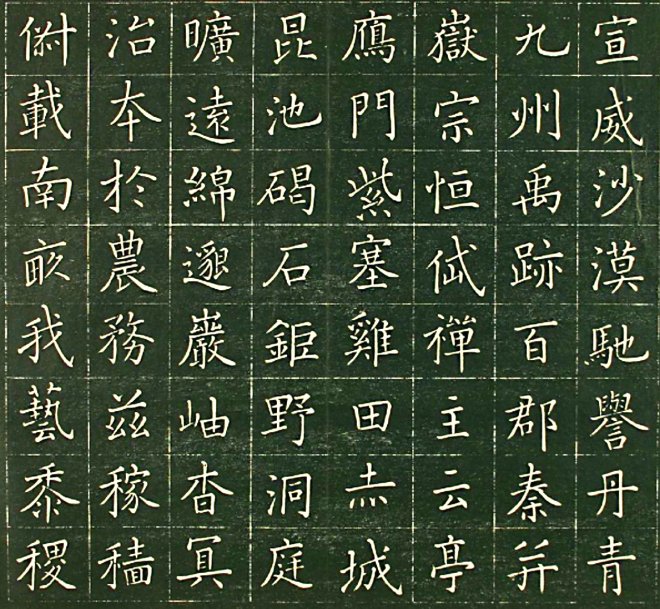 宣威沙漠馳譽丹青
九州禹跡百郡秦并
嶽宗恒岱禪主云亭
鴈門紫塞雞田赤城
昆池碣石鉅野洞庭
曠遠綿邈巖岫杳冥
治本於農務茲稼穡
俶載南畝我藝黍稷